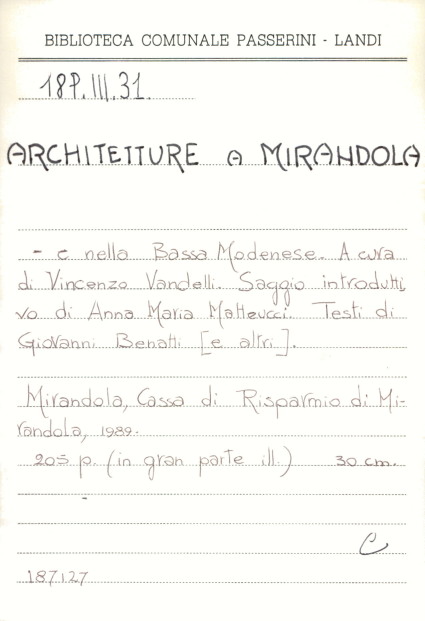 BIBLIOTECA COMUNALE PASSERINI - LANDI
18P.III.31.
ARCHITETTURE A MIRANDOLA
- e nella Bassa Modenese. A cura
di Vincenzo Vandelli. Saggio introdutti
vo di Anna Maria Matteucci. Testi di
Giovanni Benatti [e altri].
Mirandola, Cassa di Risparmio di Mi-
randola, 1989.
205 p. (in gran parte ill.) 30 cm.
C
187127